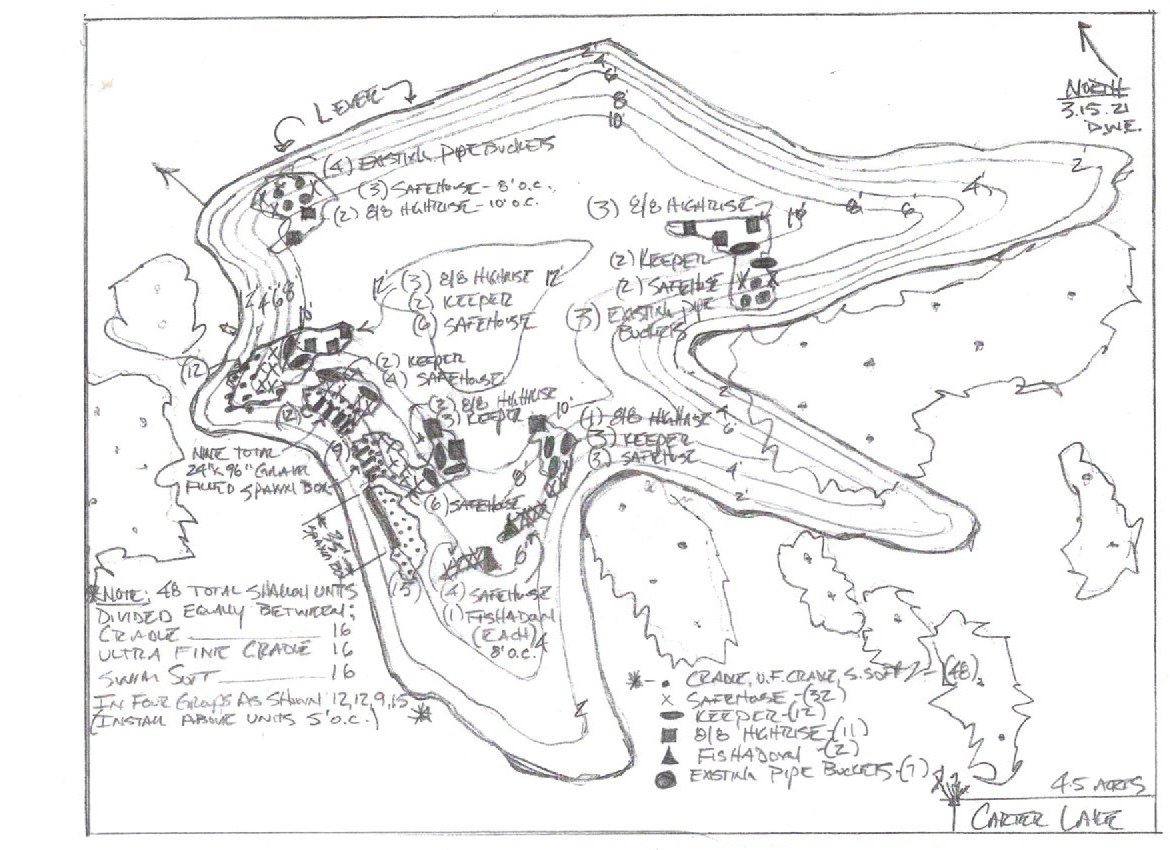 NORTH
3.15.21
D.W.E.
2'
4'
6'
8'
10'
LEVEE
(4) EXISTING PIPE BUCKETS
(3) SAFEHOUSE - 8' O.C.
(2) 8/8 HIGHRISE - 10' O.C.
(3) 8/8 HIGHRISE
10'
8'
6'
4'
2'
(2) KEEPER
(2) SAFEHOUSE
(3) EXISTING PIPE
BUCKETS
12'
(3) 8/8 HIGHRISE
12'
(2) KEEPER
(6) SAFEHOUSE
2'
4'
6'
8'
10'
(12)
(2) KEEPER
(4) SAFEHOUSE
(12)
(2) 8/8 HIGHRISE
(3) KEEPER
10'
(1) 8/8 HIGHRISE
(3) KEEPER
(3) SAFEHOUSE
2'
4'
6'
4'
2'
NINE TOTAL
24" X 96" GRAVEL
FILLED SPAWN BOX
(9)
8'
(6) SAFEHOUSE
6'
(15)
(4) SAFEHOUSE
(1) FISHADOW
(EACH)
8' O.C.
4'
2'
* NOTE; 48 TOTAL SHALLOW UNITS
DIVIDED EQUALLY BETWEEN;
CRADLE 16
ULTRA FINE CRADLE 16
SWIM SOFT 16
IN FOUR GROUPS AS SHOWN 12,12,9,15
(INSTALL ABOVE UNITS 5' O.C.) *
* - • CRADLE, U.F. CRADLE, S. SOFT - (48)
X SAFEHOUSE - (32)
KEEPER - (12)
8/8 HIGHRISE - (11)
FISHADOW - (2)
EXISTING PIPE BUCKETS - (7)
4.5 ACRES
CARTER LAKE